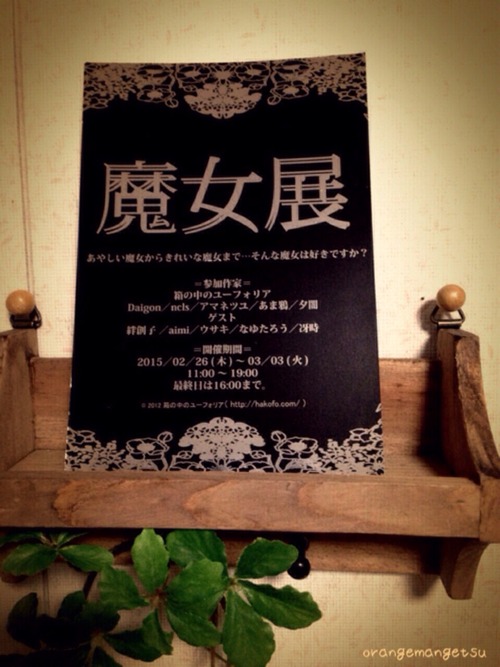 魔女展
あやしい魔女からきれいな魔女まで…そんな魔女は好きですか？
＝参加作家＝
箱の中のユーフォリア
Daigon／ncls／アマネツユ／あま鴉／夕闇
ゲスト
絆創子／aimi／ウサキ／なゆたろう／冴時
＝開催期間＝
2015／02／26(木)～03／03(火)
11:00～19:00
最終日は16:00まで。
※2012 箱の中のユーフォリア( http://hakofo.com/ )
orangemangetsu